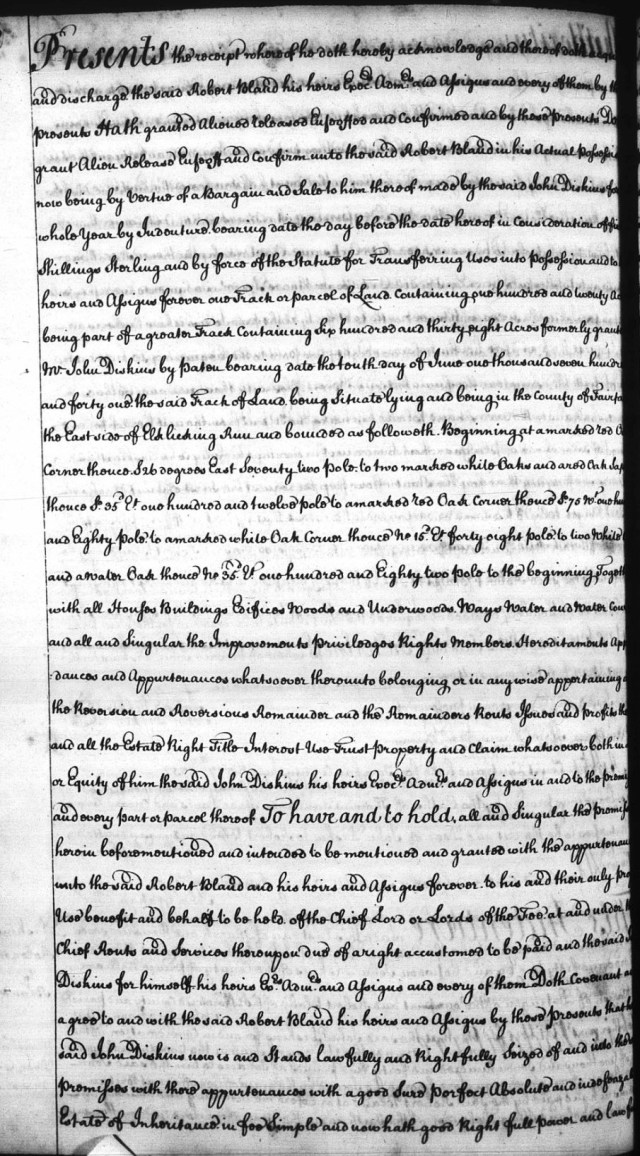 Presents the receipt whereof he doth hereby acknowledge and thereof doth
and discharge the said Robert Bland his heirs Exec.rs Adm.rs and Assigns and every of them by
presents Hath granted Aliened released Enfeoffed and Confirmed and by these presents Do
grant Alien Release Enfeoff and Confirm unto the said Robert Bland in his Actual
now being by Vertue of a Bargain and Sale to him thereof made by the said John Diskins for
whole Year by Indenture bearing date the day before the date hereof in Consideration of
Shillings Sterling and by force of the Statute for Transferring Uses into possession and to
heirs and Assigns forever one Track or parcel of Land Containing one hundred and twenty
being part of a greater Track Containing Six hundred and thirty eight Acres formerly
Mr. John Diskins by paten bearing date the tenth day of June one thousand seven
and forty one the said Track of Land being Situate lying and being in the County of
the East side of Elklicking Run and bounded as followeth. Beginning at a marked red
Corner thence S26 degrees East Seventy two pole to two marked white Oaks and a red Oak
thence So. 35d Et. one hundred and twelve pole to a marked red Oak Corner thence So. 75 Wt. one
and Eighty pole to a marked white Oak Corner thence No 15d Et. forty eight pole to two White
and a water Oak thence No 35d Et. one hundred and Eighty two pole to the beginning
with all Houses Buildings Edifices Woods and Underwoods Ways Water and Water
and all and Singular the Improvements priviledges Rights Members Hereditaments
-dances and Appurtenances whatsoever thereunto belonging or in any wise appertaining
the Reversion and Reversions Remainder and the Remainders Rents Issues and profits
and all the Estate Right Title Interest Use Trust property and Claim whatsoever both in
or Equity of him the said John Diskins his heirs Exec.rs Adm.rs and Assigns in and to the
and every part or parcel thereof To have and to hold, all and Singular the
herein beforementioned and intended to be mentioned and granted with the
unto the said Robert Bland and his heirs and Assigns forever to his and their only
Use benefit and behalf to be held of the Chief Lord or Lords of the Fee at and under
Chief Rents and Services thereupon due of aright accustomed to be paid and the said
Diskins for himself his heirs Ex.rs Adm.rs and Assigns and every of them Doth Covenant
agree to and with the said Robert Bland his heirs and Assigns by these presents that
said John Diskins now is and Stands lawfully and Rightfully Seized of and
promisses with there appurtenances with a good Sure perfect Absolute and
Estate of Inheritance in fee Simple and now hath good Right full power and